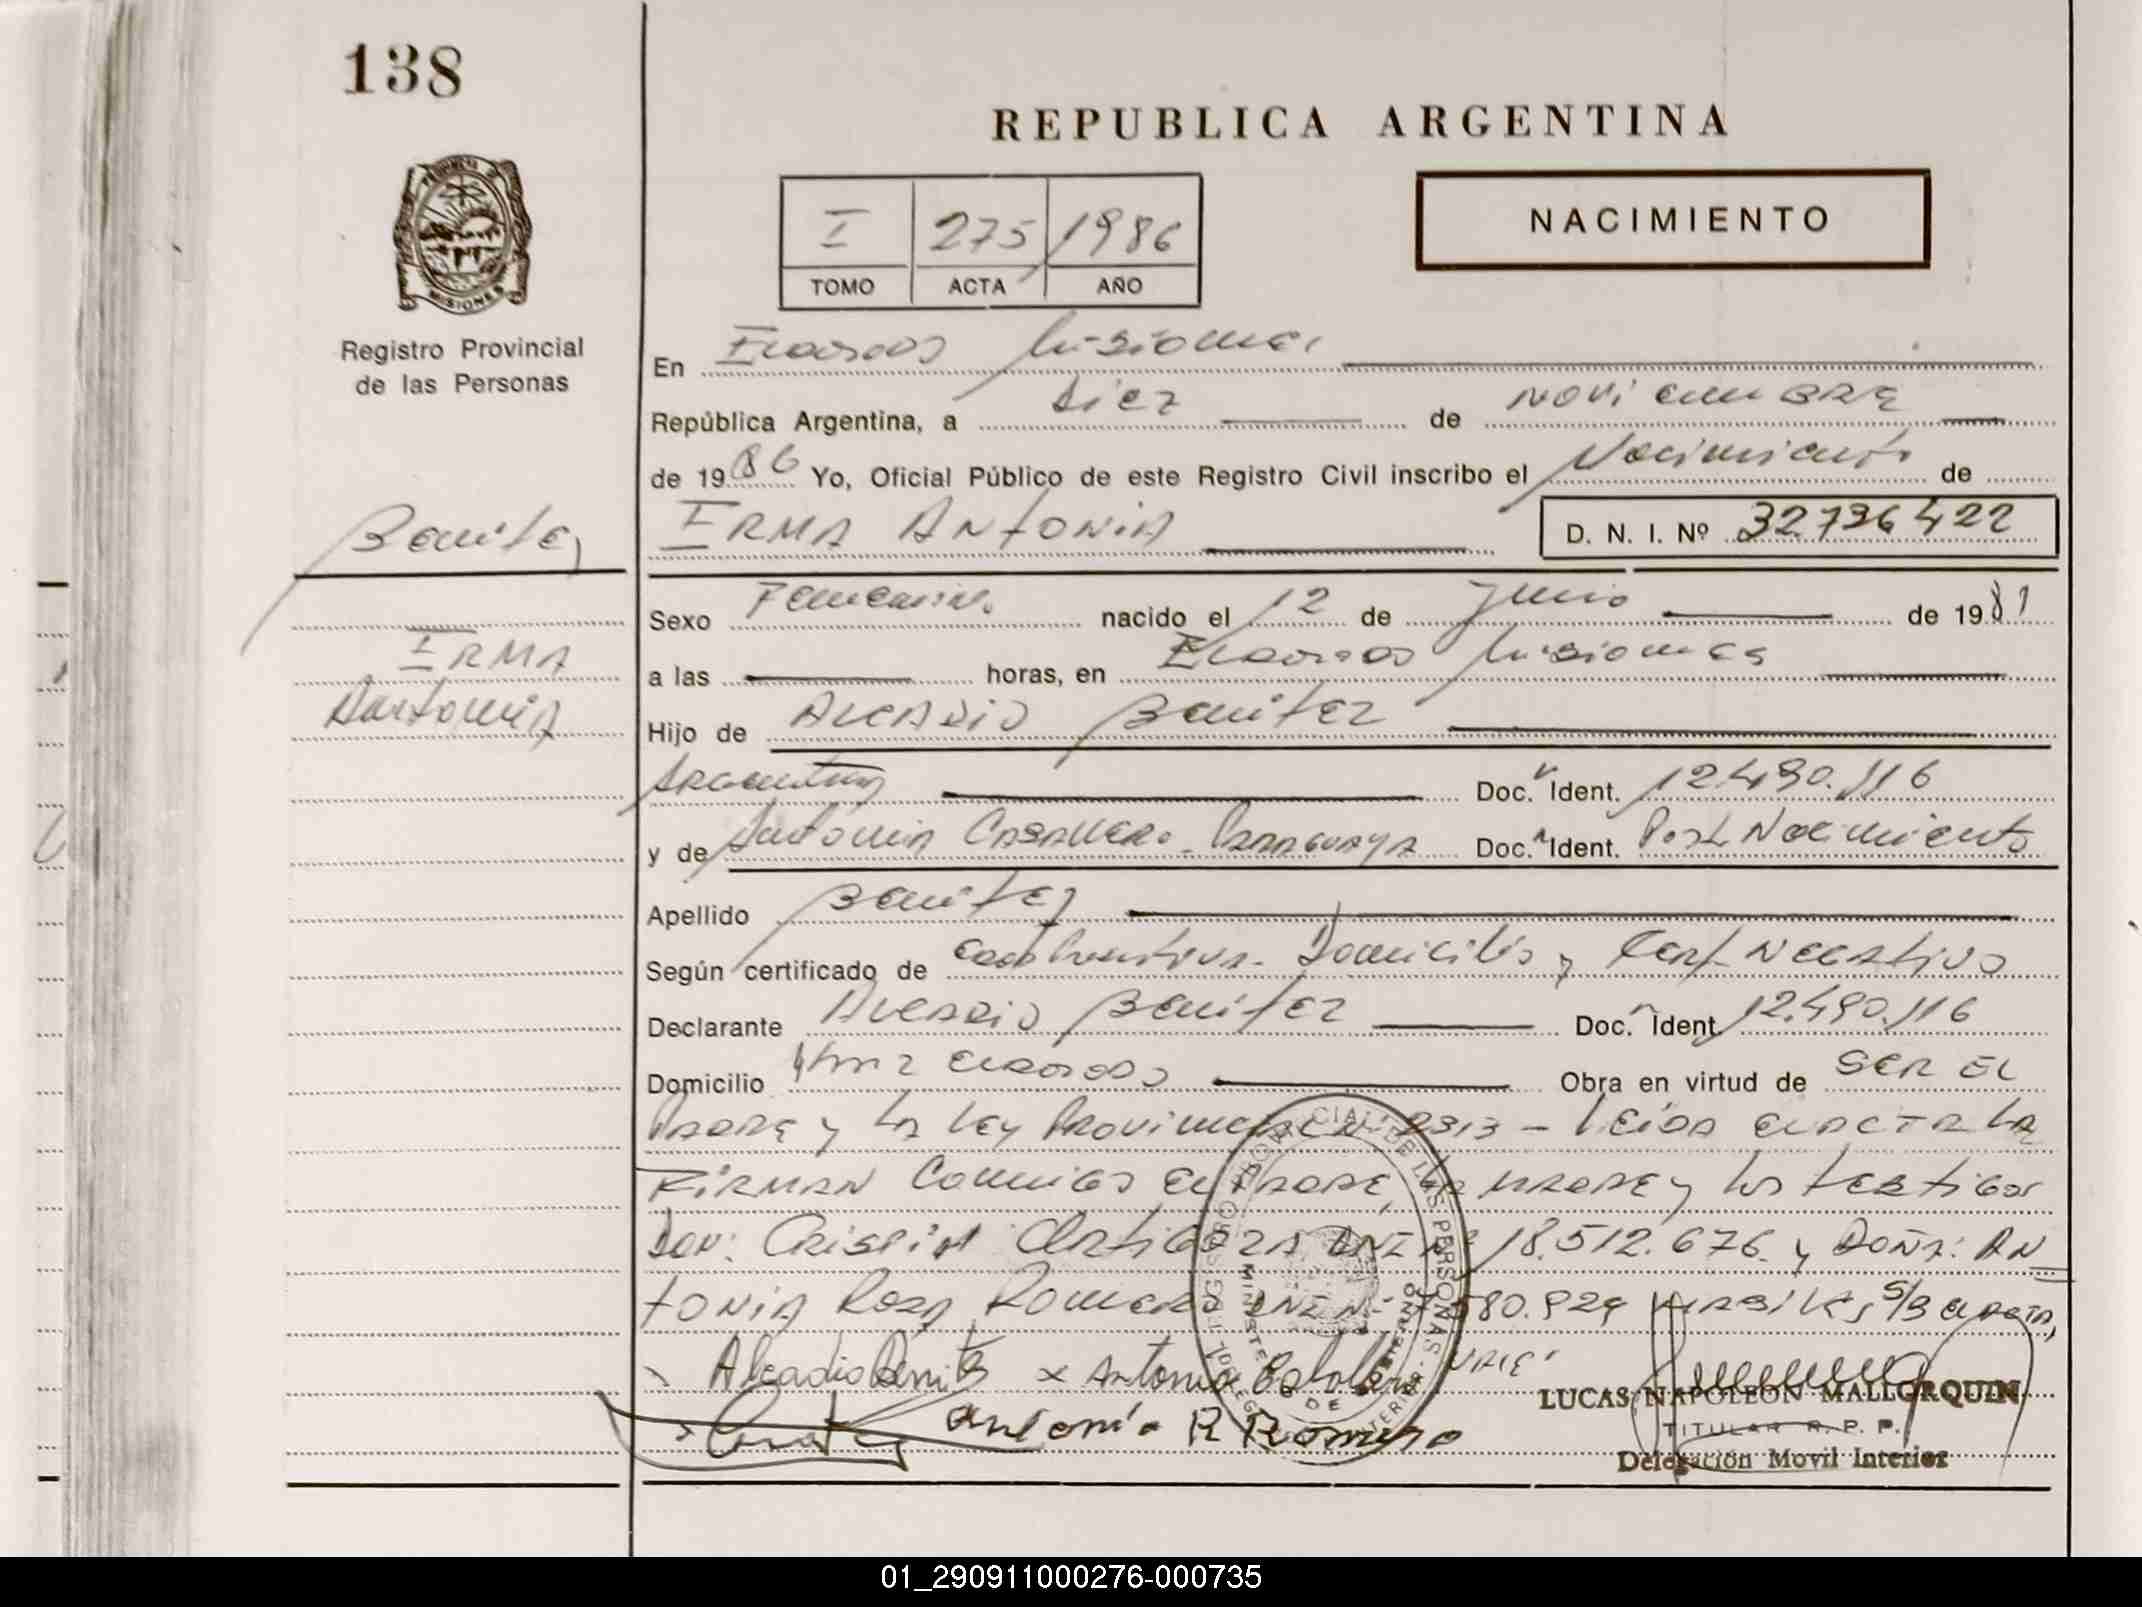 138
REPUBLICA ARGENTINA
I 275 1986
TOMO ACTA AÑO
NACIMIENTO
MISIONES
Registro Provincial
de las Personas
En Eldorado Misiones
República Argentina, a diez de Noviembre
de 1986 Yo, Oficial Público de este Registro Civil inscribo el Nacimiento de
Benitez
IRMA ANTONIA D. N. I. Nº 32.736422
Sexo Femenino nacido el 12 de Junio de 1981
IRMA
a las horas, en Eldorado Misiones
Antonia
Hijo de ALCADIO Benitez
Argentino Doc. Ident. 12.490.116
y de Antonia CABALLERO - PARAGUAYA Doc. Ident. Post. Nacimiento
Apellido Benitez
Según certificado de Domicilio y Cert Negativo
Declarante ALCADIO Benitez Doc. Ident 12.490.116
Domicilio Km 2 Eldorado Obra en virtud de SER EL
PADRE y la Ley Provincial Nº 2313 - Leida el acta la
FIRMAN Conmigo el PADRE, la MADRE y los testigos
Don: Crispin Artigoza DNI Nº 18.512.676 y DOÑA: AN
TONIA ROSA Romero DNI Nº 580.929 S/B
x Alcadio Benitez x Antonia Caballero VALE
Antonia R Romero
LUCAS NAPOLEON MALLORQUIN
TITULAR R. P. P.
Delegación Movil Interior
01_290911000276-000735